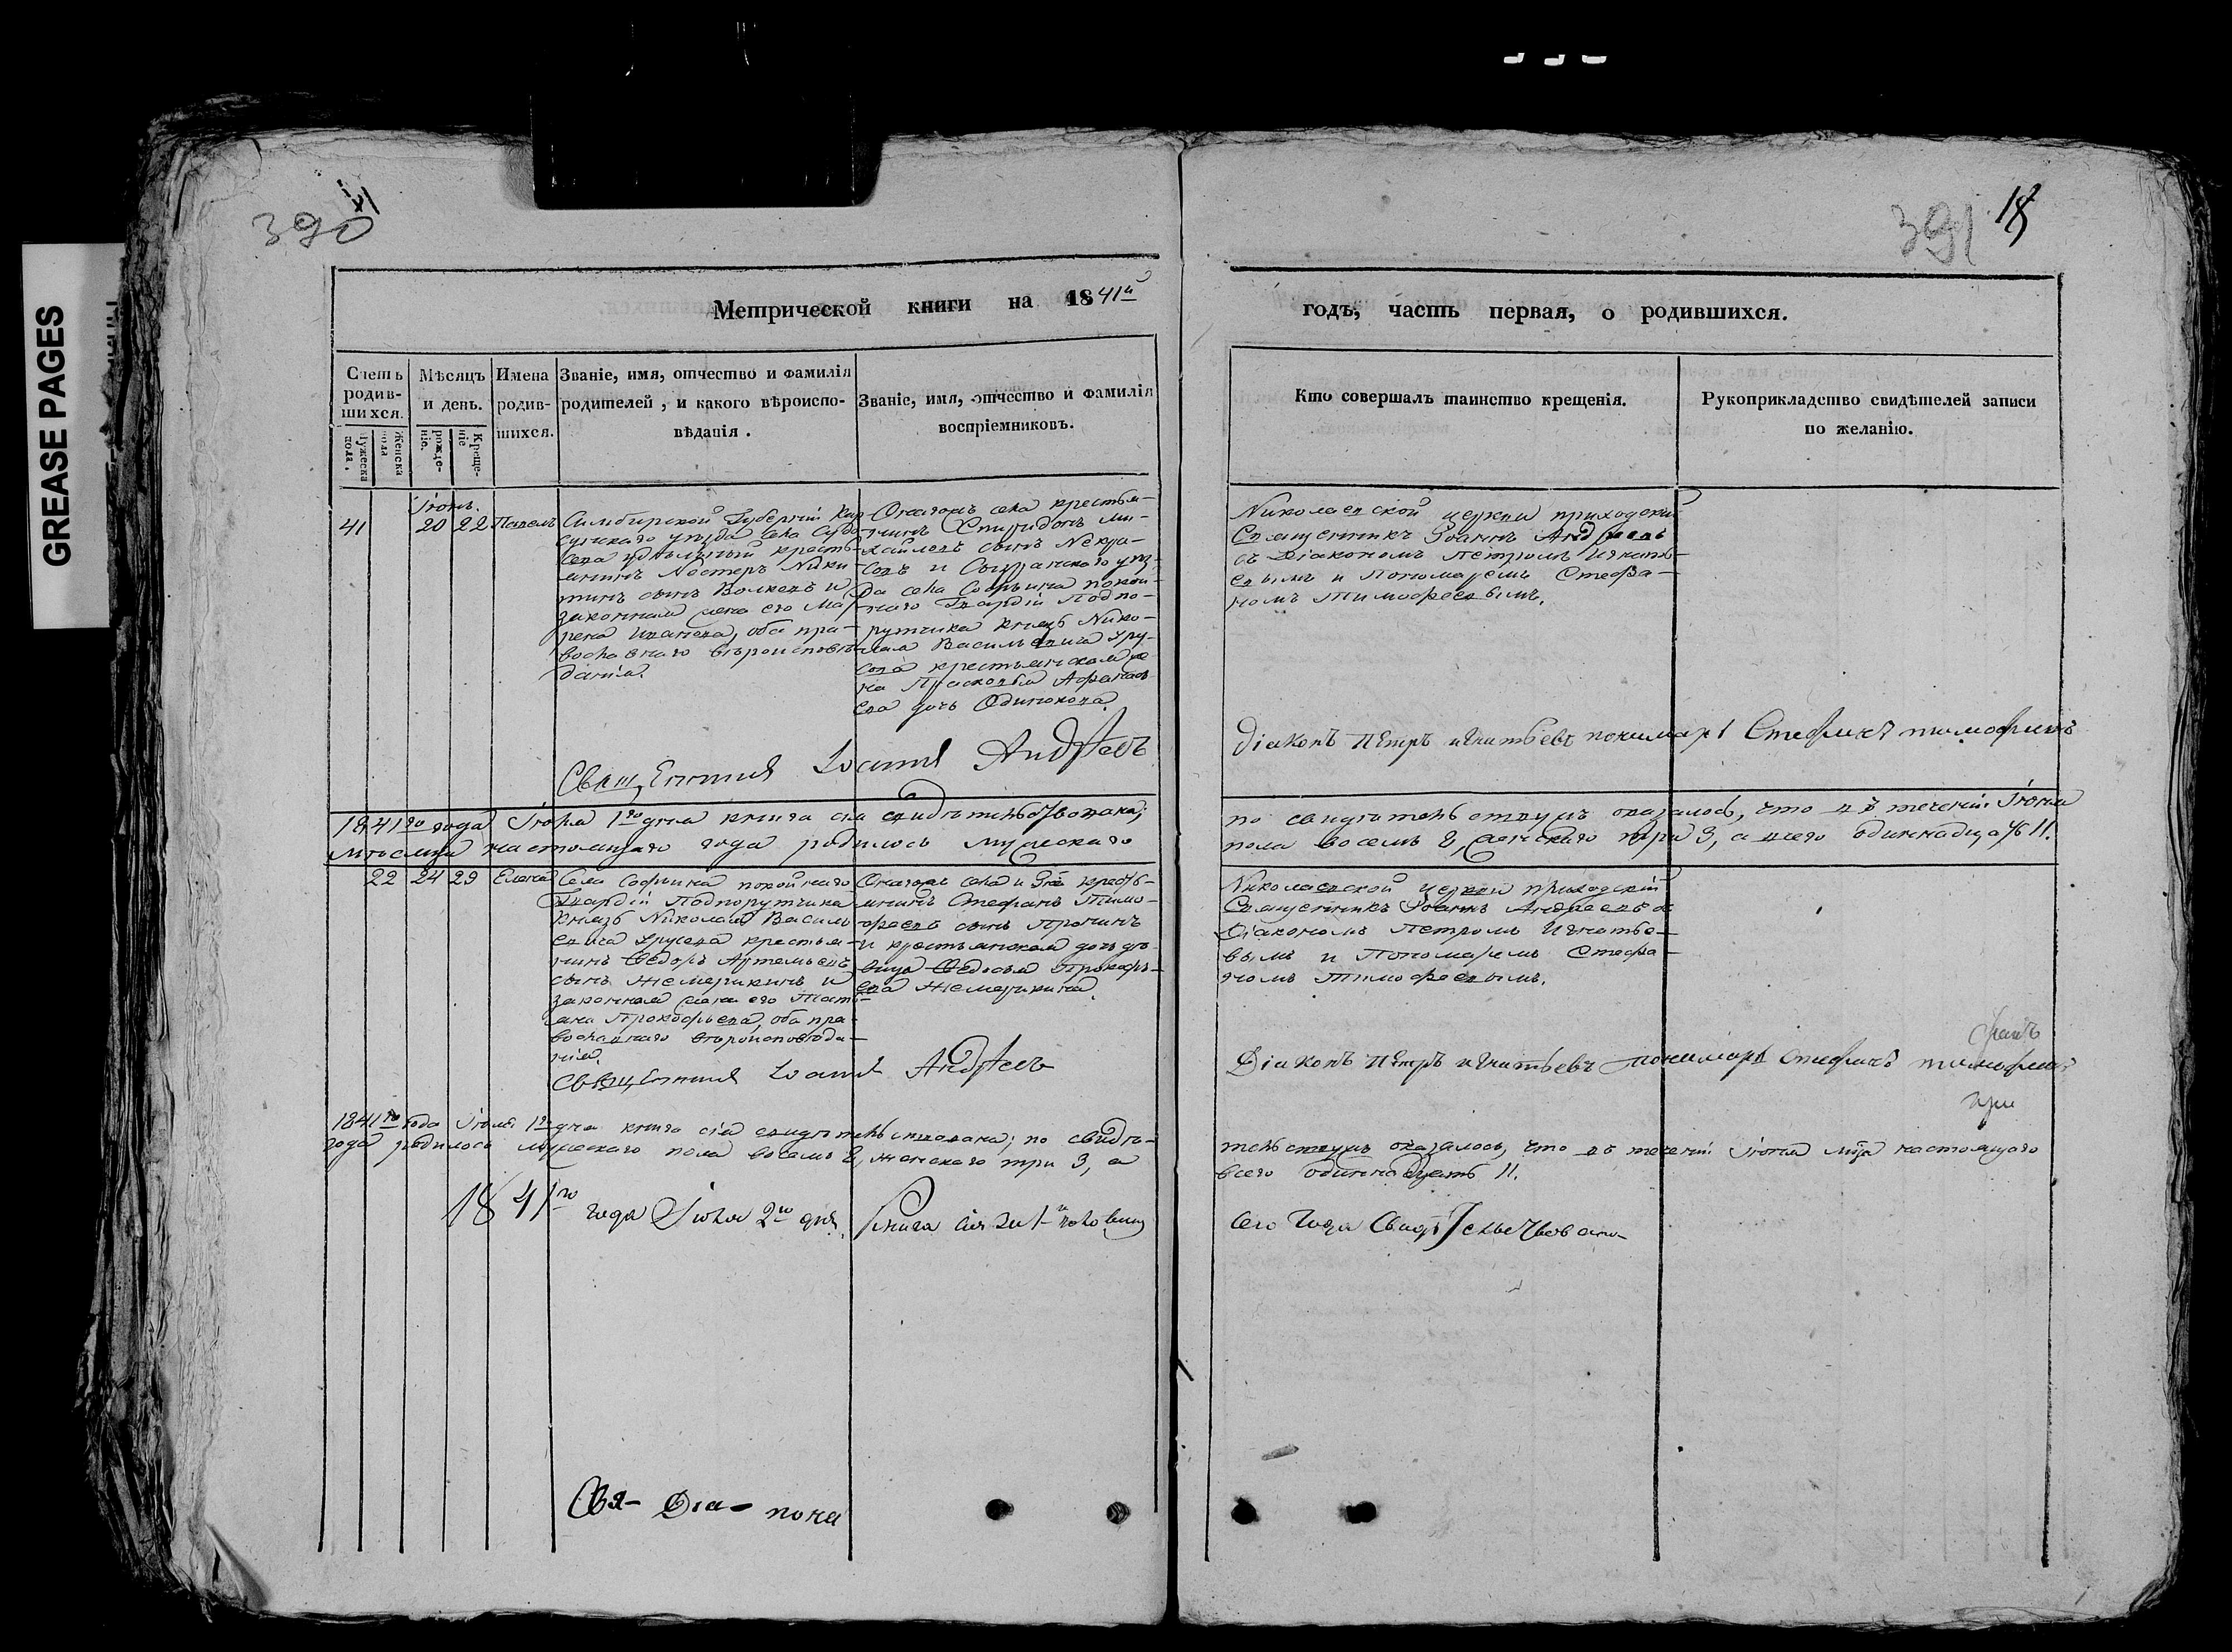 GREASE PAGES
390
391
18
Метрической книги на 1841й
годъ, часть первая, о родившихся.
Счетъ родив-
шихся.
Мужеска пола.
Женска пола
Мѣсяцъ
и день.
рожде-
ніе.
Креще-
ніе
Имена
родив-
шихся.
Званіе, имя, отчество и фамилія
родителей, и какого вѣроиспо-
вѣданія.
Званіе, имя, отчество и фамилія
воспріемниковъ.
Кто совершалъ таинство крещенія.
Рукоприкладство свидѣтелей записи
по желанію.
Іюнь.
41
20 22
Павелъ
Симбирской Губерніи Кар-
сунскаго уѣзда села
удѣльный кресть-
янинъ Нестеръ Ники-
тинъ сынъ Волковъ и
законная жена его Ма-
рѳа Иванова, оба пра-
вославнаго вѣроисповѣ-
данія.
Означеннаго села крестья-
нинъ Спиридонъ Ми-
хайловъ сынъ Некра-
совъ и Сызранскаго уѣз-
да села Софьина покой-
наго Гвардіи Подпо-
рутчика князь Нико-
лая Васильевича Уру-
сова крестьянская же-
на Прасковья Афанась-
ева дочь Одинокова.
Николаевской церкви приходскій
Священникъ Іоаннъ Андреевъ
съ Діакономъ Петромъ Игнать-
евымъ и Пономаремъ Стефа-
номъ Тимофеевымъ.
Священникъ Іоаннъ Андреевъ
Діаконъ Петръ Игнатьевъ пономарь Стефанъ Тимофеевъ
1841го года Іюня 1го дня книга сія свидѣтельствована;
по свидѣтельствумъ оказалось, что въ теченіи Іюня
мѣсяца настоящаго года родилось мужескаго
пола восемь 8, женскаго три 3, а всего одиннадцать 11.
22 24 29
Елена
Села Софьина покойнаго
Гвардіи Подпорутчика
Князь Николая Василь-
евича Урусова крестья-
нинъ Ѳедоръ Артемьевъ
сынъ Жемерикинъ и
законная жена его Тать-
яна Прокофьева, оба пра-
вославнаго вѣроисповѣда-
нія.
села и Г. кресть-
янинъ Стефанъ Тимо-
феевъ сынъ Пронинъ
и крестьянская дочь дѣ-
вица Ѳедосья Прокофь-
ева Жемерикина.
Николаевской церкви приходскій
Священникъ Іоаннъ Андреевъ съ
Діакономъ Петромъ Игнатье-
вымъ и Пономаремъ Стефа-
номъ Тимофеевымъ.
Священникъ Іоаннъ Андреевъ
Діаконъ Петръ Игнатьевъ пономарь Стефанъ Тимофеевъ
1841го года Іюля 1го дня книга сія свидѣтельствована; по свидѣ-
тельствумъ оказалось, что въ теченіи Іюня мца настоящаго
года родилось мужескаго пола восемь 8, женскаго три 3, а
всего одиннадцать 11.
1841го года Іюля 2го дня книга сія за 1ю половину
сего года Свидѣтельствована
Свя- Діа- пона